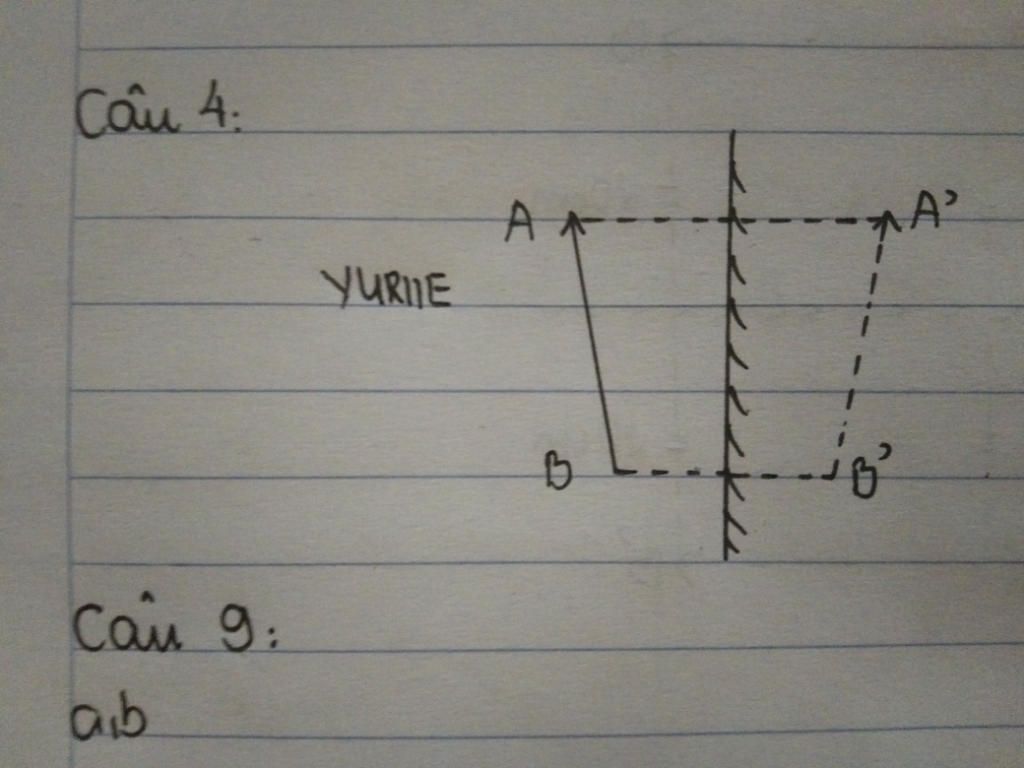 Câu 4:
A A'
YURIIE
B B'
Câu 9:
a,b